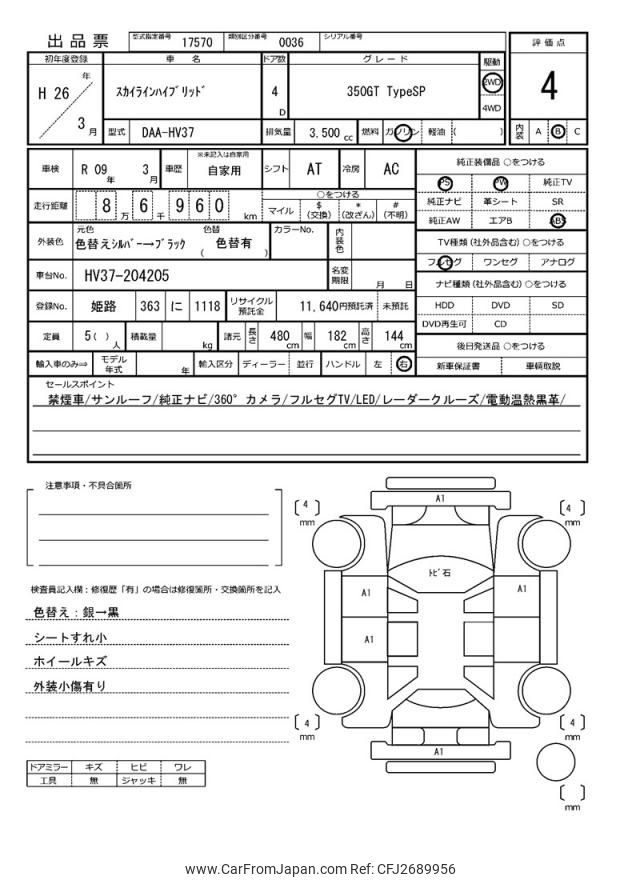 出品票 型式指定番号 17570 類別区分番号 0036 シリアル番号
評価点
4
内装 A B C
初年度登録 車名 ドア数 グレード 駆動
H 26 年 3 月
スカイラインハイブリッド 4 D 350GT TypeSP 2WD
4WD
型式 DAA-HV37 排気量 3,500 cc 燃料 ガソリン 軽油 ( )
車検 R 09 年 3 月 車歴 ※未記入は自家用 自家用 シフト AT 冷房 AC
走行距離 8 万 6 千 9 6 0 km
○をつける
マイル $(交換) *(改ざん) #(不明)
外装色 元色 色替えシルバー→ブラック 色替 色替有 ( ) カラーNo. 内装色
車台No. HV37-204205 名変期限 月 日
登録No. 姫路 363 に 1118 リサイクル預託金 11,640円預託済 未預託
定員 5( ) 人 積載量 kg 諸元 長さ 480 cm 幅 182 cm 高さ 144 cm
輸入車のみ⇒ モデル年式 年 輸入区分 ディーラー 並行 ハンドル 左 右
純正装備品 ○をつける
PS PW 純正TV
純正ナビ 革シート SR
純正AW エアB ABS
TV種類 (社外品含む) ○をつける
フルセグ ワンセグ アナログ
ナビ種類 (社外品含む) ○をつける
HDD DVD SD
DVD再生可 CD
後日発送品 ○をつける
新車保証書 車輌取説
セールスポイント
禁煙車/サンルーフ/純正ナビ/360°カメラ/フルセグTV/LED/レーダークルーズ/電動温熱黒革/
注意事項・不具合箇所
検査員記入欄：修復歴「有」の場合は修復箇所・交換箇所を記入
色替え：銀→黒
シートすれ小
ホイールキズ
外装小傷有り
ドアミラー キズ ヒビ ワレ
工具 無 ジャッキ 無
A1
4 mm
4 mm
トビ石
A1
A1
A1
4 mm
4 mm
A1
mm
www.CarFromJapan.com Ref: CFJ2689956